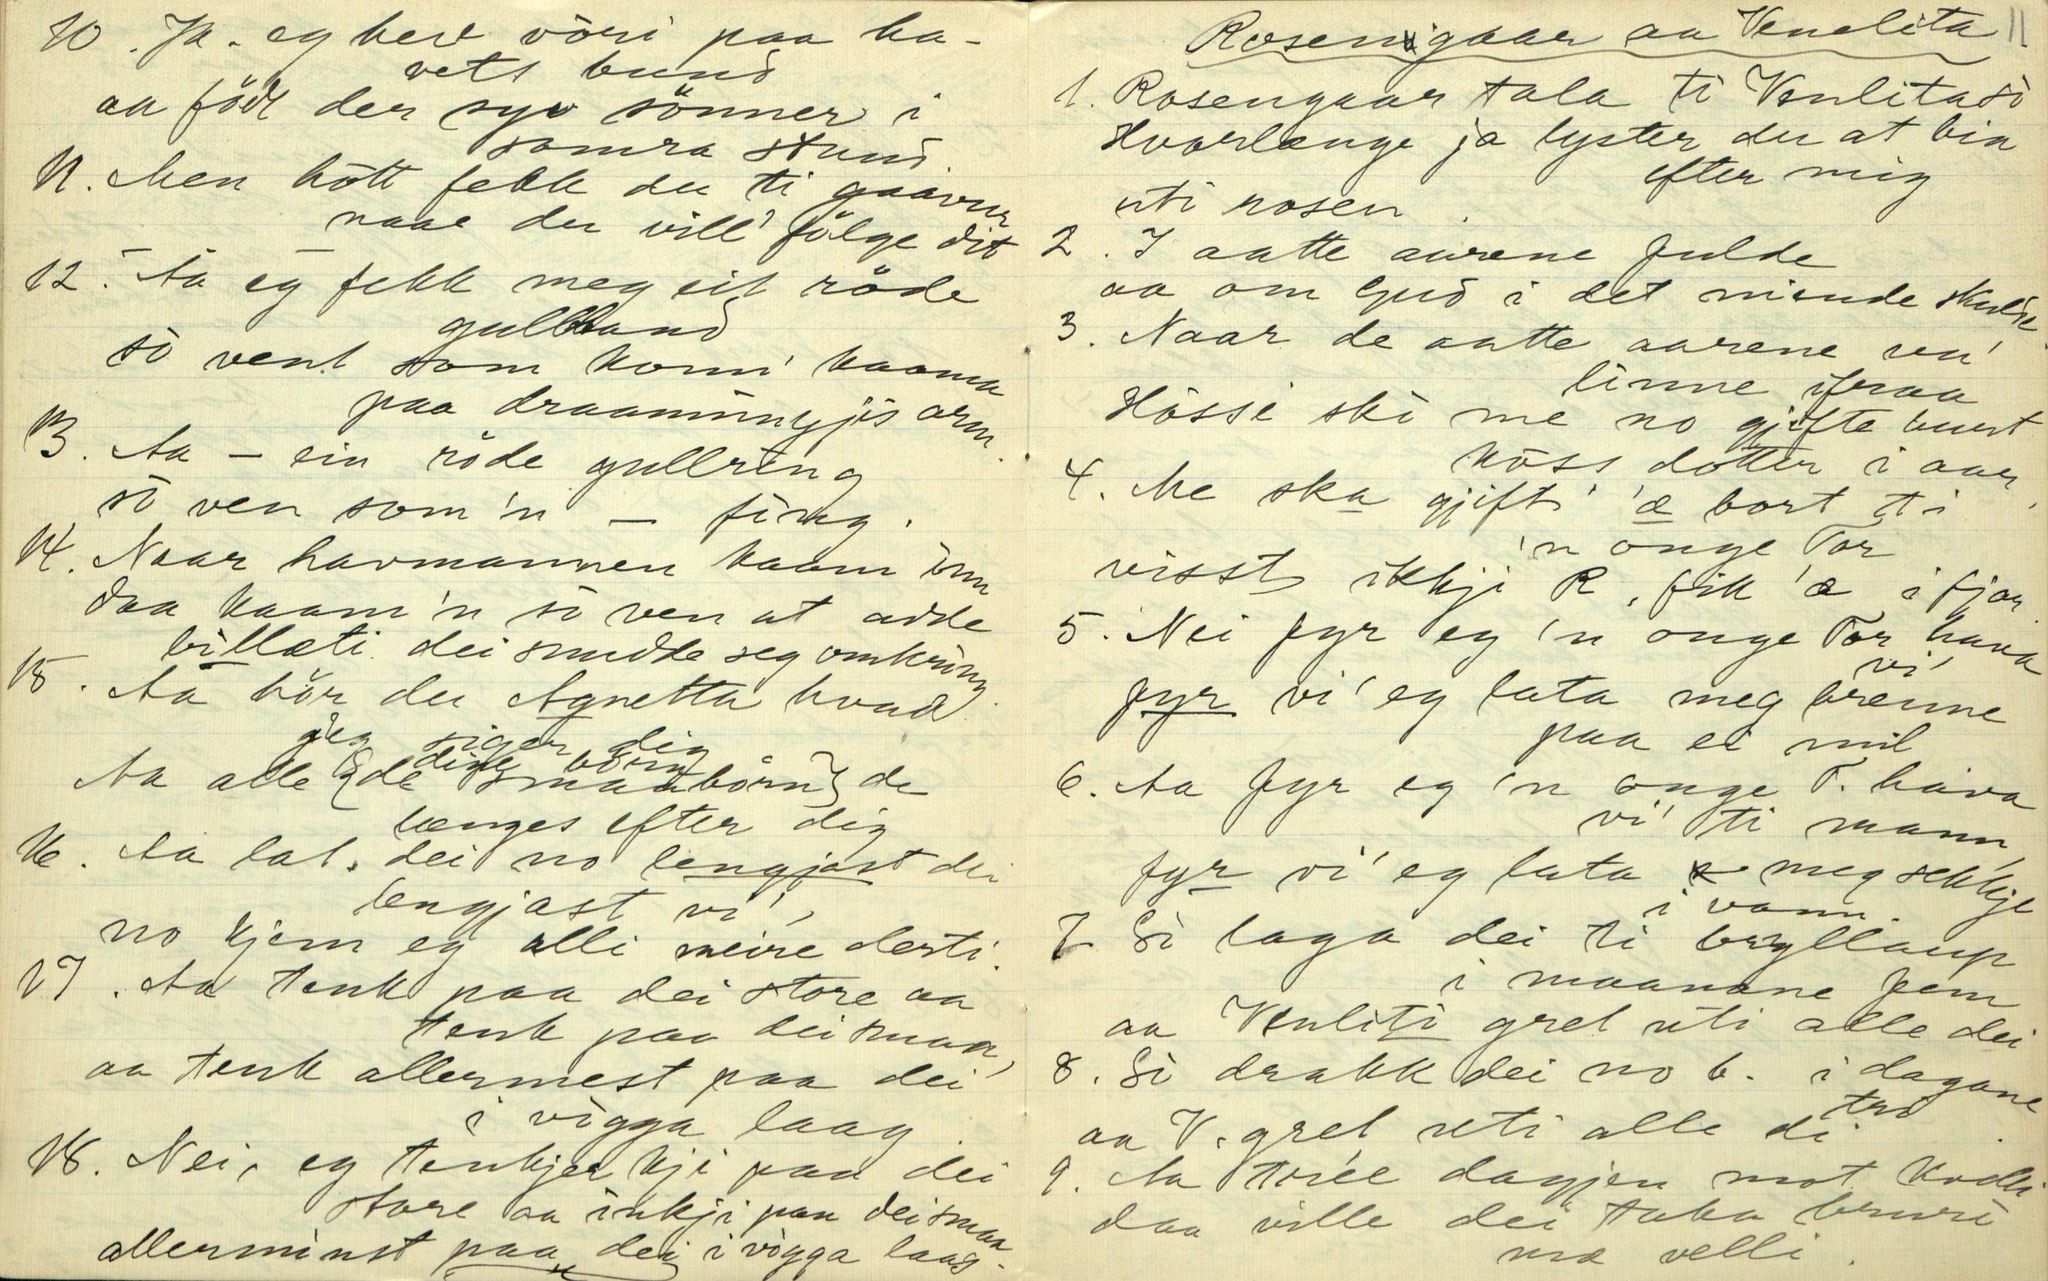 10. Ja. eg hev vöri paa ha-
vets bund
aa född der syv sönner i
samra stund.
11. Men hött fekk du ti gaavur
naar du vill' fölge dit
12. Aa eg fekk meg eit röde
gullband
sö vent som komi' kaama
paa draanningjis arm.
13. Aa – ein röde gullring
sö ven som 'n – fing.
14. Naar havmannen kaam inn
daa kaam 'n sö ven at adde
billæti dei snudde seg omkring.
15. Aa hör du Agnetta hvad
jeg siger dig
dine börn
Aa alle {de smaabörn} de
længes efter dig
16. Aa lat. dei no lengjast dei
lengjast vi',
no kjem eg alli meire derti.
17. Aa tenk paa dei store aa
tenk paa dei smaa,
aa tenk allermest paa dei
i vögga laag.
18. Nei, eg tenkjer kji paa dei
store aa inkji paa dei smaa
allerminst paa dei i vögga laag.
11
Rosengaar aa Venelita
1. Rosengaar tala ti Venlita sö
Hvorlænge ja lyster du at bia
efter mig
uti rosen.
2. I aatte aarene fulde
aa om Gud i det niende skulde.
3. Naar de aatte aarene va'
linne ifraa
Hössi ski me no gjifte burt
köss dotter i aar.
4. Me ska gjift' 'æ bort ti
'n onge Tor
visst ikkji R. fik 'æ i fjor
5. Nei fyr eg 'n onge Tor hava
vi'
fyr vi' eg lata meg brenne
paa ei mil
6. Aa fyr eg 'n onge T. hava
vi' ti mann,
fyr vi' eg lata meg sekkje
i vann.
7 Sö laga dei ti bryllaup
i maanane fem
aa Venliti gret uti alle dei
8. Sö drakk dei no b. i dagane
tri
aa V. gret uti alle di.
9. Aa trië dagjen mot kvelli
daa ville dei taka bruri
mæ velli.